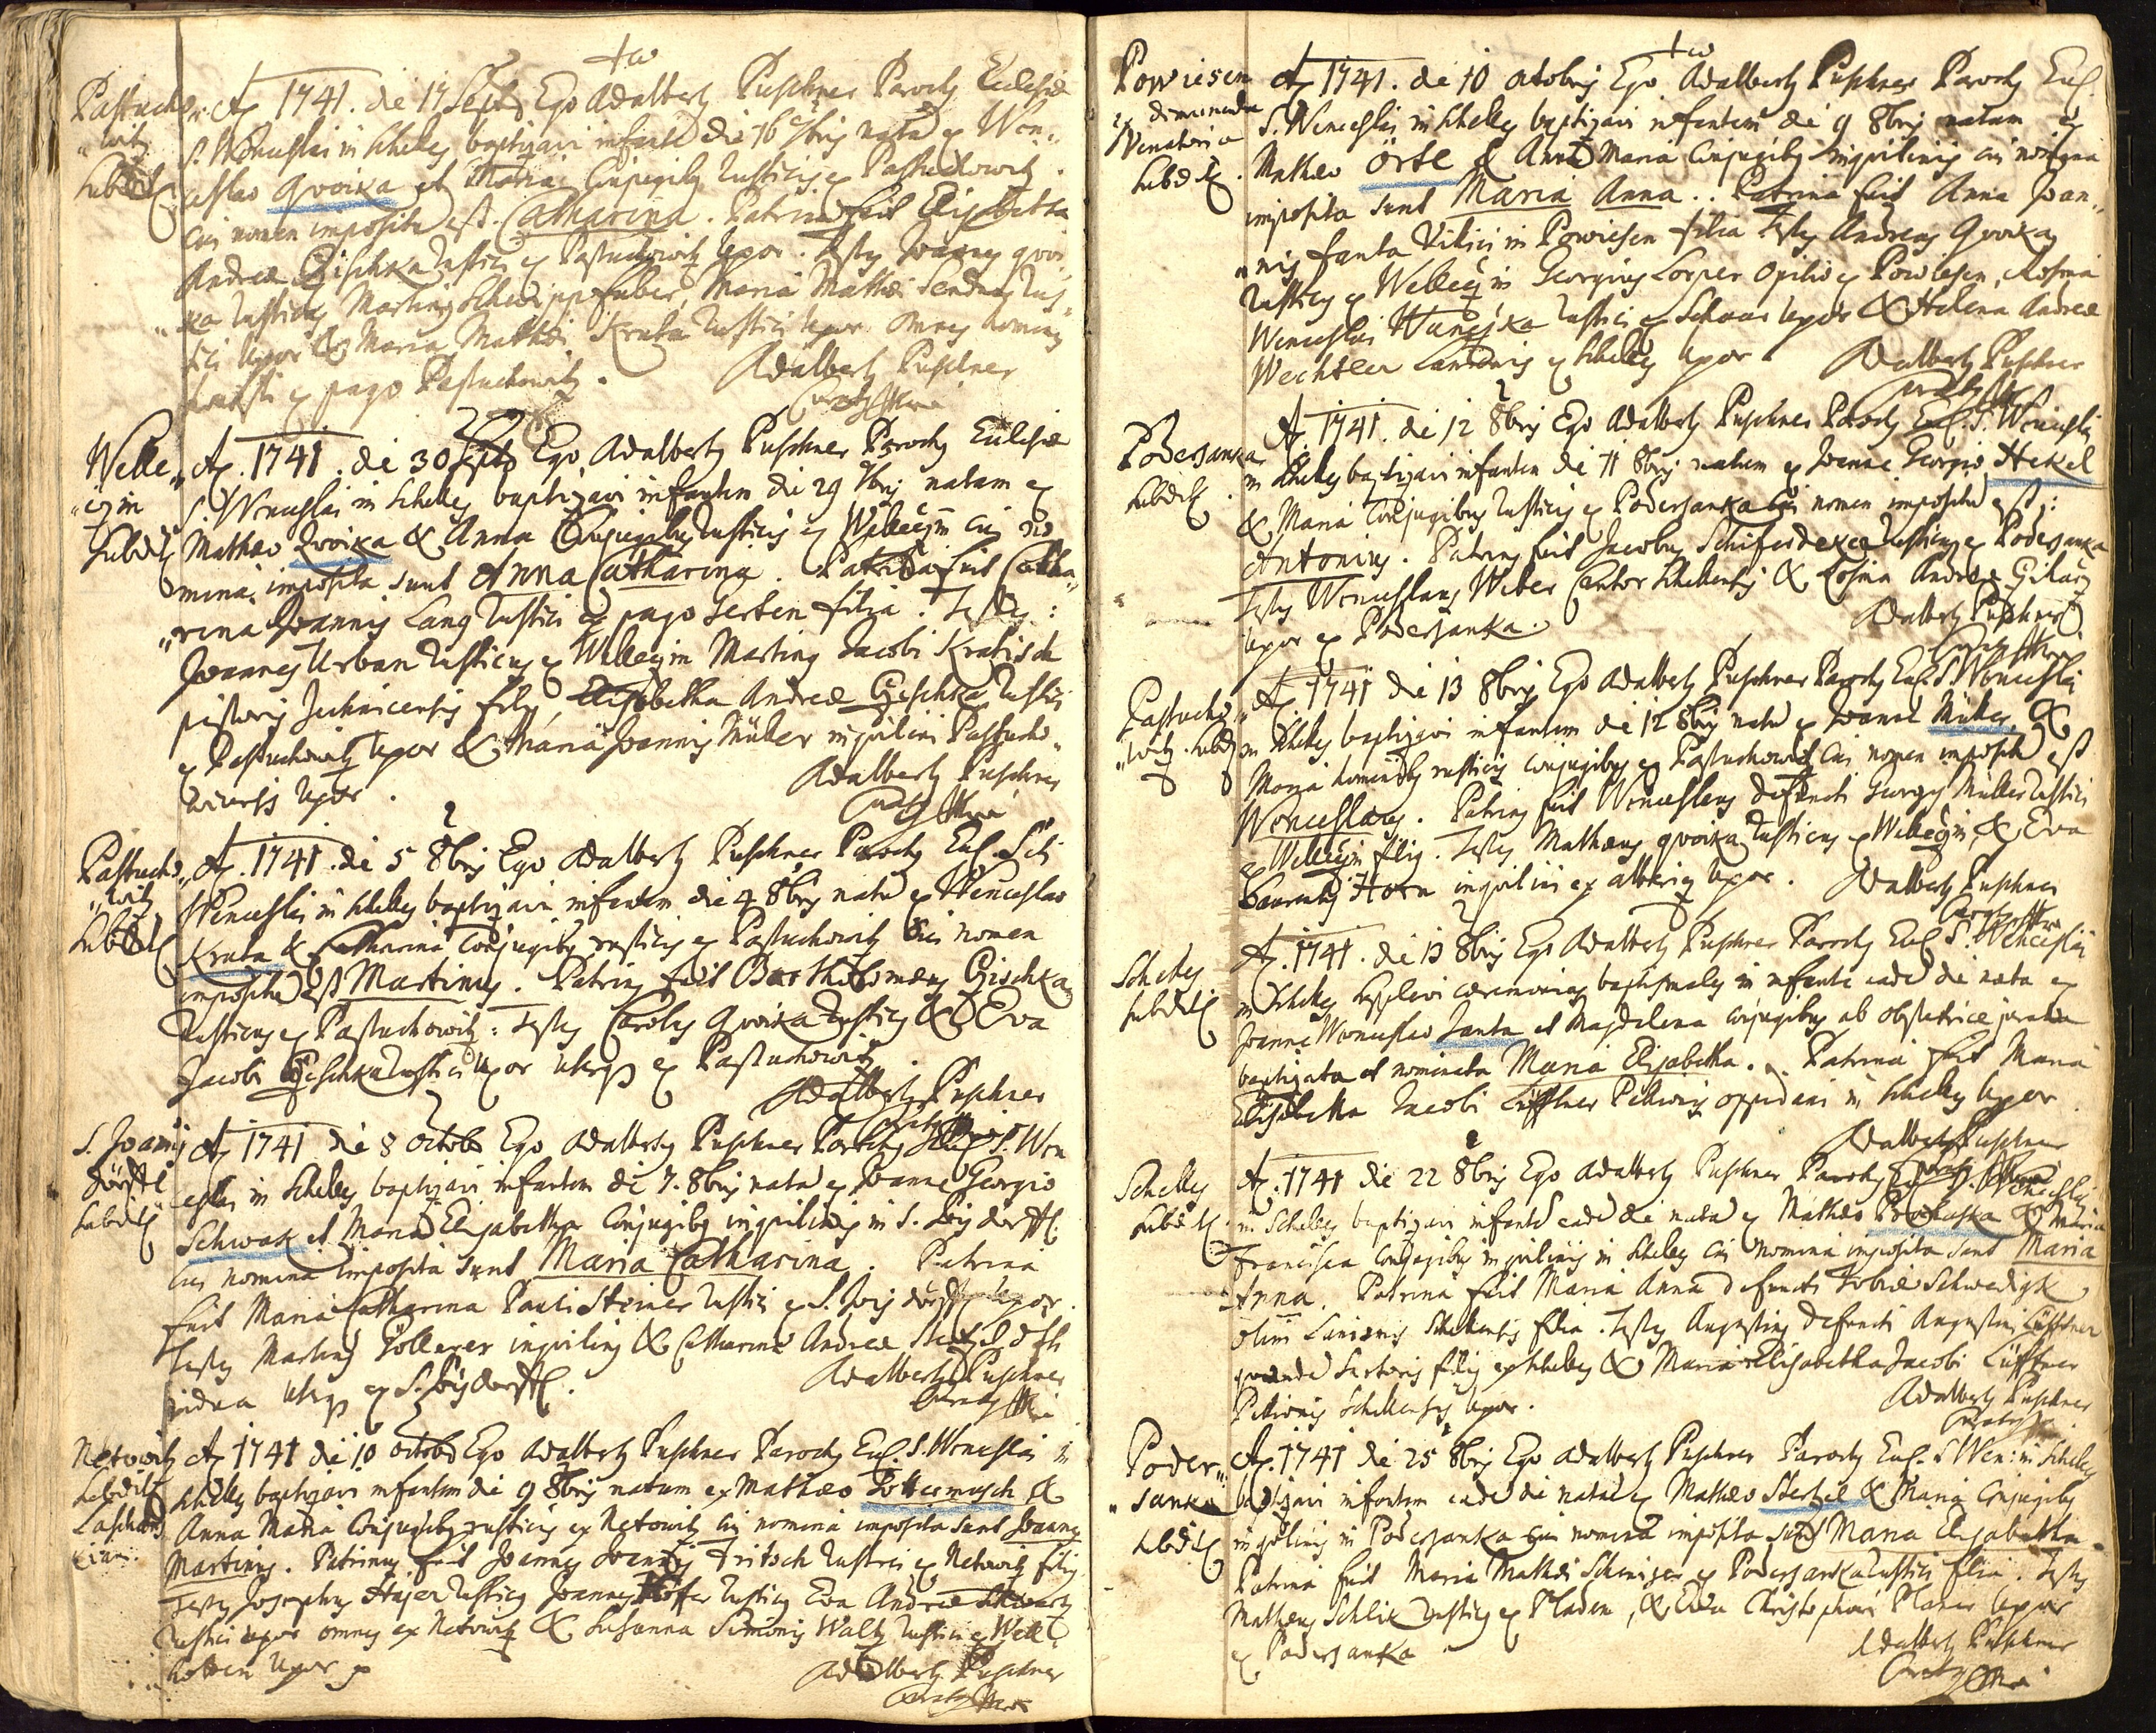 Pastucho„
„witz
Subditi
A. 1741. die 17 Septb Ego Adalberty Puschner Parochy Ecclesiæ
S. Wenceslai in Scheles baptizavi infante die 16 7bris nata ex Wen„
ceslao Qvoika et Maria Conjugiby Rusticis ex Pastuchowitz.
Cui nomen impositu est Catharina. Patrina fuit Elisabetha
Andreæ Gischka Rustici ex Pastuchowitz Uxor. Testes Joannes qvoi„
„ka Rusticus Martinus faber, Maria Mathæi Rus„
tici Uxor & Maria Mathæi Kruta Rustici Uxor Omnes
ex pago Pastuchowitz.
Adalberty Puschner
Welle„
„czin
Subditi
A. 1741. die 30 Septb Ego Adalberty Puschner Parochy Ecclesiæ
S. Wenceslai in Scheles baptizavi infantem die 29 7bris natam ex
Matheo Qvoika & Anna Conjugibus Rusticis ex Welleczin cui no„
mina imposita sunt Anna Catharina. Patrina fuit Catha„
„rina Joannis Lang Rustici ex pago Serben filia. Testes:
Joannes Urban Rusticus ex Welleczin Martinus Jacobi Kratisch
pistoris Jechnicensis filius, Elisabetha Andreæ Gischka Rustici
ex Pastuchowitz Uxor & Maria Joannis Müller inquilini Pastucho„
wicensis Uxor.
Adalberty Puschner
Pastucho„
„witz
Subditi
A. 1741. die 5 8bris Ego Adalberty Puschner Parochy Eccl. Sti
Wenceslai in Scheles baptizavi infantem die 4 8bris natu ex Wenceslao
Kruta & Catharina Conjugiby rusticis ex Pastuchowitz Cui nomen
impositu est Martinus. Patrinus fuit Bartholomæus Gischka
Rusticus ex Pastuchowitz: Testes Carolus Qvoika Rusticus & Eva
Jacobi Gischka Rustici Uxor uterq ex Pastuchowitz
Adalberty Puschner
S. Joannis
dörffl
Subditi
A. 1741 die 8 Octobr Ego Adalberty Puschner Parochy Eccl. S. Wen
ceslai in Scheles baptizavi infantem die 7. 8bris nata ex Joanne Georgio
Schwak et Maria Elisabetha Conjugiby inquilinis in S. Joisdorffl
cui nomina imposita sunt Maria Catharina. Patrina
fuit Maria Catharina Pauli Steiner Rustici ex S. Jois dörffl Uxor.
Testes Martinus Göllerer inquilinus & Catharina Andreæ
vidua uterq ex S. Joisdorffl.
Adalberty Puschner
Netowitz
Subditi
A. 1741 die 10 Octobr Ego Adalberty Puschner Parochy Eccl. S. Wenceslai in
Scheles baptizavi infantem die 9 8bris natum ex Matheo Pottermusch &
Anna Maria Conjugiby rusticis ex Netowitz cui nomina imposita sunt Joannes
Martinus. Patrinus fuit Joannes Fritsch Rustici ex Netowitz filius
Testes Josephus Hajer Rusticus Joannes Hoffer Rusticus Eva Andreæ Schwartz
Rustici uxor omnes ex Netowitz & Susanna Simonis Waltz Rustici ex Well
hotten Uxor
Adalberty Puschner
Powiesen
Subditi.
A. 1741. die 10 Octobris Ego Adalberty Puschner Parochy Eccl.
S. Wenceslai in Scheles baptizavi infantem die 9 8bris natam ex
Matheo Örtl & Anna Maria Conjugiby inquilinis cui nomina
imposita sunt Maria Anna.. Patrina fuit Anna Joan„
„nis Janta Villici in Powiesen filia Testes Andreas Qvoika
Rusticus ex Welleczin Georgius Lorper Opilio ex Powiesen, Rosina
Wenceslai Rustici ex Uxor & Helena Andreæ
Wechtler Lanionis ex Scheles Uxor
Adalberty Puschner
Podersanka
Subditi.
A. 1741. die 12 8bris Ego Adalberty Puschner Parochy Eccl. S. Wenceslai
in Scheles baptizavi infantem die 11 8bris natum ex Joanne Georgio Hekel
& Maria Conjugibus Rusticis ex Podersanka Cui nomen impositu est:
Antonius. Patrinus fuit Jacobus Schiferdeker Rusticus ex Podersanka
Testes Wenceslaus Weber Cantor Schelensis & Rosina Andreæ
Uxor ex Podersanka.
Adalberty Puschner
Pastucho„
„witz. Subditi
A. 1741 die 13 8bris Ego Adalberty Puschner Parochy Eccl. S. Wenceslai
in Scheles baptizavi infantem die 12 8bris natu ex Joanne Müller &
Maria rusticis conjugibus ex Pastuchowitz cui nomen impositu est
Wenceslaus. Patrinus fuit Wenceslaus Defuncti Georgii Müller Rustici
ex Welleczin filius. Testes Mathæus qvoika Rusticus ex Welleczin, & Eva
Laurentii Horn inquilini ex Alberitz Uxor.
Adalberty Puschner
Scheles
Subditi
A. 1741. die 13 8bris Ego Adalberty Puschner Parochy Eccl. S. Wenceslai
in Scheles supplevi cæremonias baptismales in infante eade die nata ex
Joanne Wenceslao Janta et Magdalena conjugibus ab obstetrice jurata
baptizata et nominata Maria Elisabetha.. Patrina fuit Maria
Elisabetha Jacobi Lüffner Pellionis oppidani in Scheles Uxor.
Adalberty Puschner
Scheles
Subditi.
A. 1741 die 22 8bris Ego Adalberty Puschner Parochy Eccl. S. Wenceslai
in Scheles baptizavi infante eade die nata ex Matheo Prochaska & Maria
Francisca Conjugiby inquilinis in Scheles cui nomina imposita sunt Maria
Anna. Patrina fuit Maria Anna defuncti Tobiæ Schwedigk
olim Lanionis Schelensis filia. Testes Augustinus defuncti Augustini Lüffner
quonda Sartoris filius ex Scheles & Maria Elisabetha Jacobi Lüffner
Pellionis Schelensis Uxor.
Adalberty Puschner
Poder„
„sanka
Subditi
A. 1741 die 25 8bris Ego Adalberty Puschner Parochy Eccl. S Wen: in Scheles
baptizavi infantem eade die nata ex Matheo Stertzl & Maria Conjugiby
inquilinis in Podersanka cui nomina imposita sunt Maria Elisabetha.
Patrina fuit Maria Mathæi Schmiger ex Podersanka Rustici filia. Testes
Matheus Schlik Rusticus ex Pladen, & Eva Christophori Planer Uxor
ex Podersanka
Adalberty Puschner